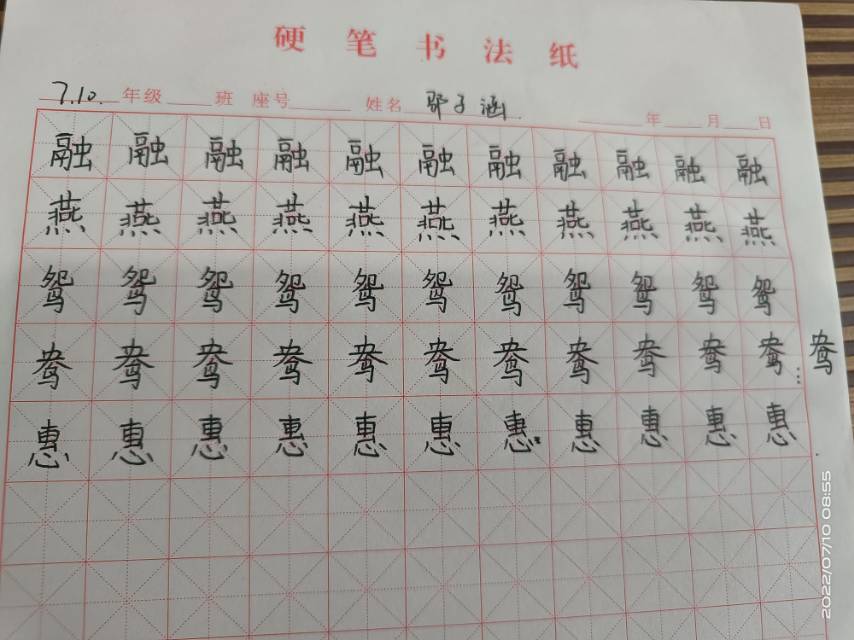 硬笔书法纸
7.10. 年级 班 座号 姓名 邬子涵 年 月 日
融融融融融融融融融融融
燕燕燕燕燕燕燕燕燕燕燕
鸳鸳鸳鸳鸳鸳鸳鸳鸳鸳鸳
鸯鸯鸯鸯鸯鸯鸯鸯鸯鸯鸯鸯
惠惠惠惠惠惠惠惠惠惠惠
2022/07/10 08:55